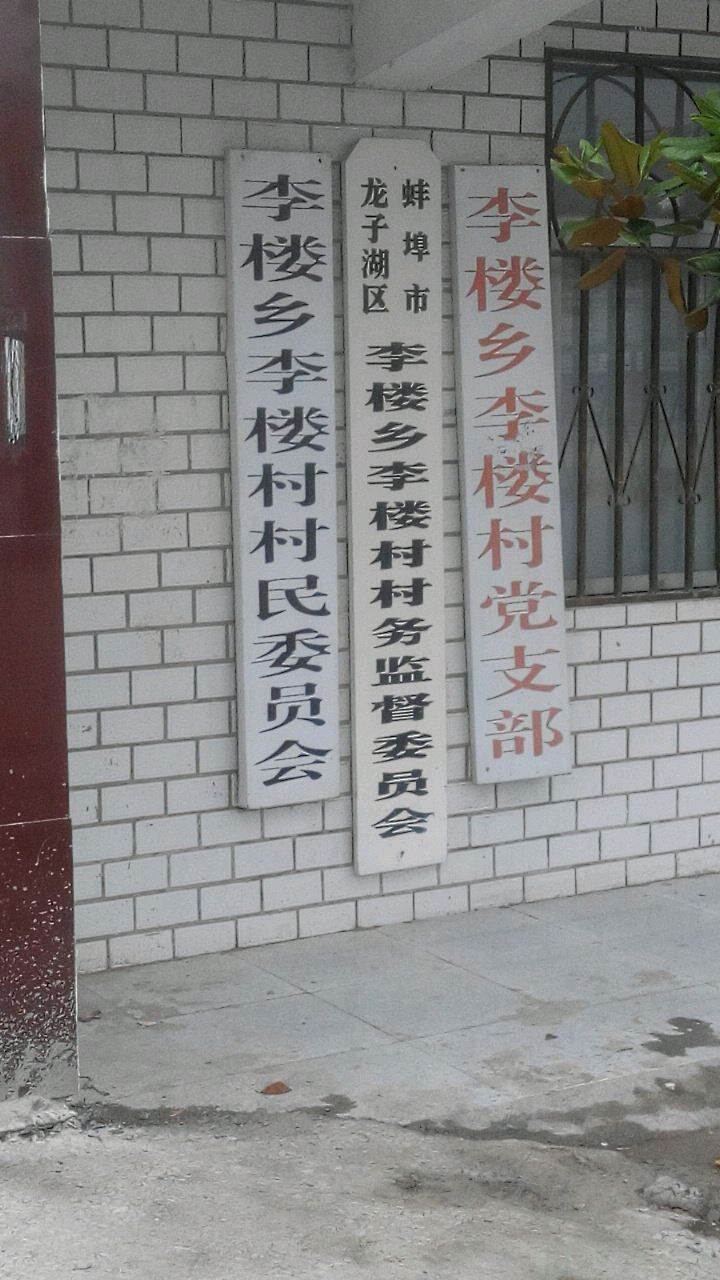 李楼乡李楼村村民委员会
蚌埠市
龙子湖区
李楼乡李楼村村务监督委员会
李楼乡李楼村党支部